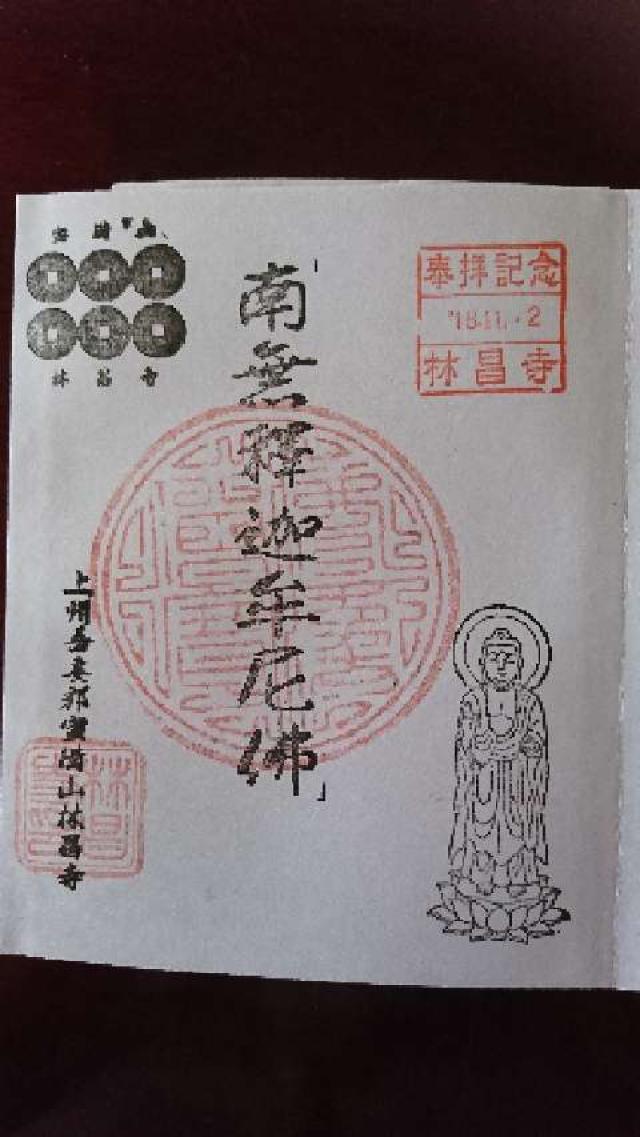 奉拝記念
'18.11.-2
林昌寺
「南無釋迦牟尼佛」
宝満山
林昌寺
上州吾妻郡寶満山林昌寺